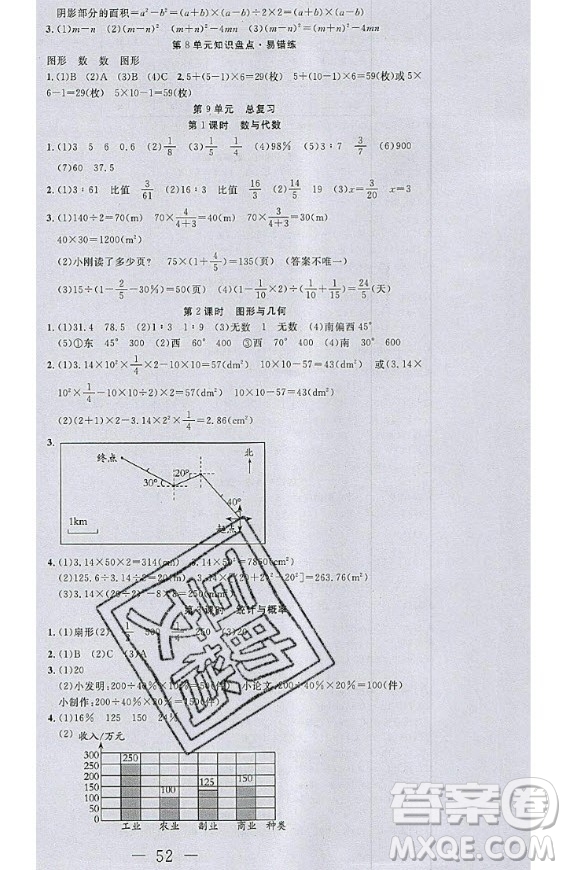 阴影部分的面积=a²-b²=(a+b)×(a-b)÷2×2=(a+b)×(a-b)
3.(1)m-n (2)(m+n)²-4mn (3)(m-n)²=(m+n)²-4mn
第8单元知识盘点·易错练
图形 数 数 图形
1.(1)B (2)A (3)C 2.5+(5+1)×6=29(枚) 5+(10-1)×6=59(枚)或5×
6-1=29(枚) 5×10-1=59(枚)
第9单元 总复习
第1课时 数与代数
1.(1)3 5 6 0.6 (2)1/8 (3)1/10 (4)98% (5)3:7 3/7 (6)900
(7)60 37.5
2.(1)3:61 比值 3/61 (2)16:3 比值 16/3 14/5 19 (3)x=4/3 x=3
3.(1)140÷2=70(m) 70×4/(4+3)=40(m) 70×3/(4+3)=30(m)
40×30=1200(m²)
(2)小刚读了多少页? 75×(1+4/5)=135(页) (答案不唯一)
(3)15÷(1-3/5-30%)=50(页) (4)(1-1/10×2)÷(1/10+1/15)=24/5(天)
第2课时 图形与几何
1.(1)31.4 78.5 (2)1:3 1:9 (3)无数 1 无数 (4)南偏西45°
(5)①东 45° 200 ②西 60° 400 ③西 70° 400 (4)南 30° 600
2.(1)3.14×10²×1/4-2×10×10÷2=57(dm²) 或(3.14×10²×1/4-
10²×1/2)×2=57(dm²)
(2)(2+1)×2-3.14×2²×1/4=2.86(cm²)
3.
终点
30°
20°
40°
北
起点
1km
4.(1)3.14×50×2=314(cm) 3.14×50²=7850(cm²)
(2)125.6÷3.14÷2=20(m)
=263.76(m²)
(3)3.14×
-8×8=
(cm²)
课时 统计与概率
1.(1)扇形 (2)
(3)20
2.(1)B (2)C
3.(1)20
(2)小发明:200÷40%×10%=50(件) 小论文:200÷40%×20%=100(件)
小制作:200÷40%×30%=150(件)
4.(1)16% 125 150 24%
(2) 收入/万元
300
250
200
150
100
50
0
250
100
125
150
工业 农业 副业 商业 种类
— 52 —
互助文娱
答案圈
MXQE.COM